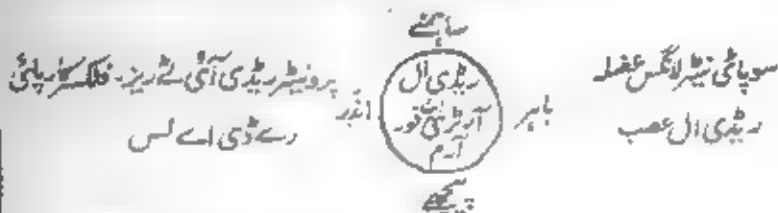 سامنے
سوپائی نیٹر لانگس عضلہ
ریڈی ال عصب
باہر
ریڈی ال
آرٹری ان
فور
آرم
اندر
پرونیٹر ریڈی آئی ٹے ریز، فلکسر کارپائی
رے ڈی اے لس
پیچھے